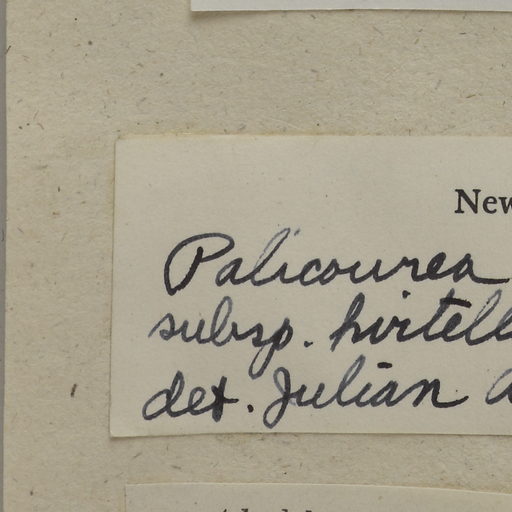 New
Palicourea
subsp. hirtell
det. Julian A